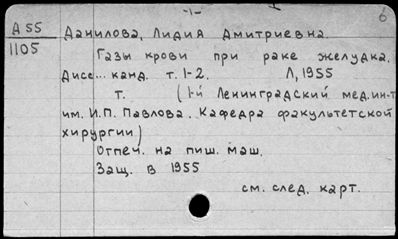 -1-
6
А 55
1105
Данилова, Лидия Дмитриевна.
Газы крови при раке желудка.
Дисс... канд. т. 1-2. Л, 1955
т. (1-й Ленинградский мед.ин-т
им. И.П. Павлова. Кафедра факультетской
хирургии)
Отпеч. на пиш. маш.
Защ. в 1955
см. след. карт.